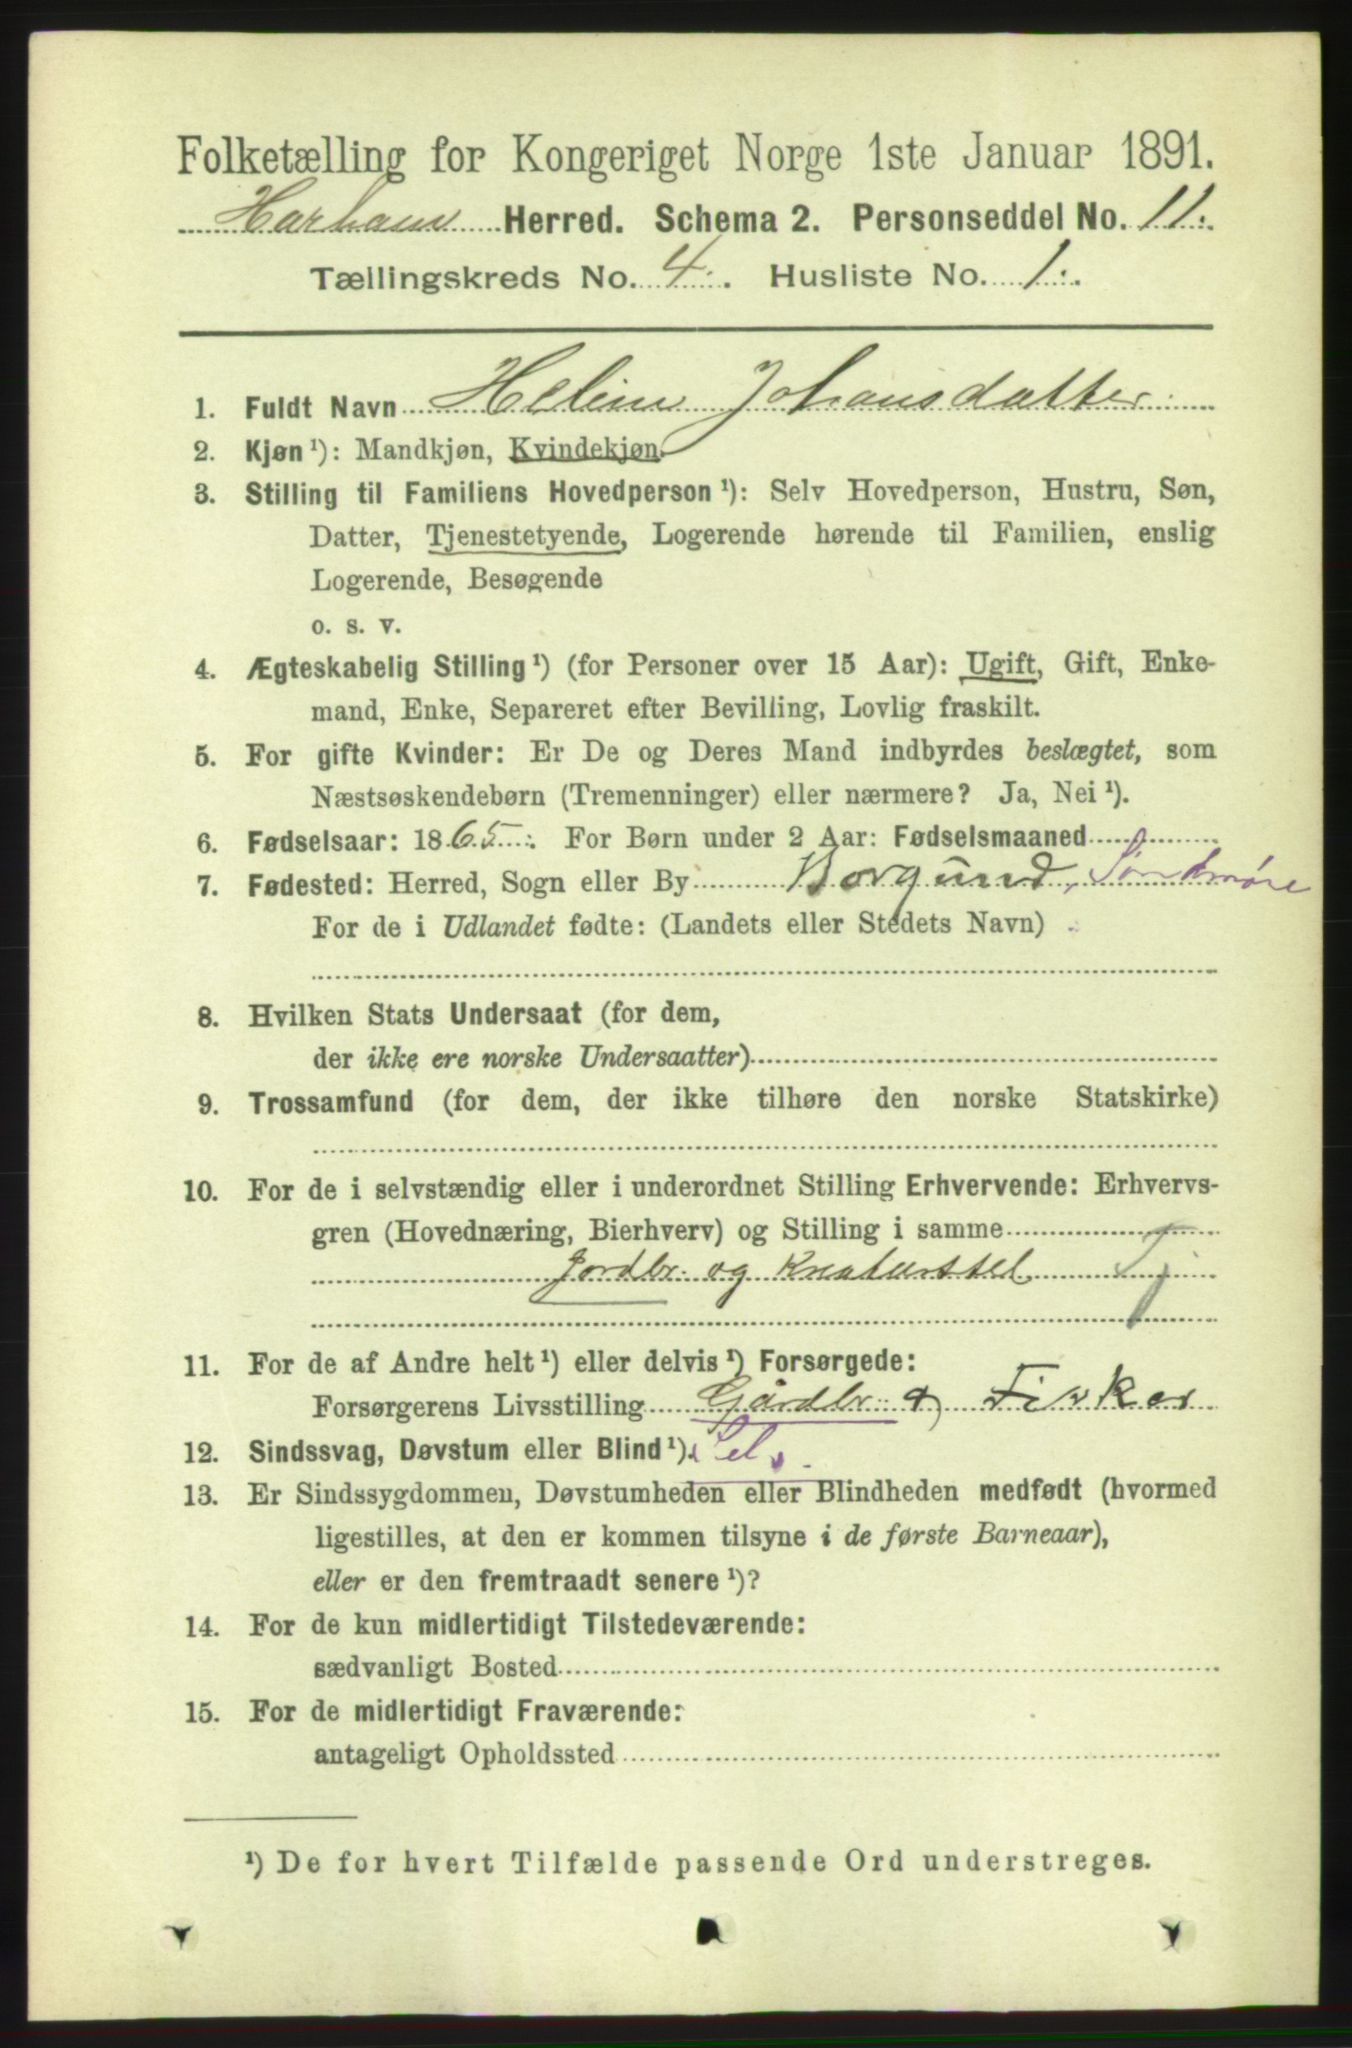 Folketælling for Kongeriget Norge 1ste Januar 1891.
Harham Herred. Schema 2. Personseddel No. 11.
Tællingskreds No. 4. Husliste No. 1.
1. Fuldt Navn Heline Johansdatter
2. Kjøn ¹): Mandkjøn, Kvindekjøn.
3. Stilling til Familiens Hovedperson ¹): Selv Hovedperson, Hustru, Søn,
Datter, Tjenestetyende, Logerende hørende til Familien, enslig
Logerende, Besøgende
o. s. v.
4. Ægteskabelig Stilling ¹) (for Personer over 15 Aar): Ugift, Gift, Enke-
mand, Enke, Separeret efter Bevilling, Lovlig fraskilt.
5. For gifte Kvinder: Er De og Deres Mand indbyrdes beslægtet, som
Næstsøskendebørn (Tremenninger) eller nærmere? Ja, Nei ¹).
6. Fødselsaar: 1865. For Børn under 2 Aar: Fødselsmaaned
7. Fødested: Herred, Sogn eller By Borgund, Søndmøre
For de i Udlandet fødte: (Landets eller Stedets Navn)
8. Hvilken Stats Undersaat (for dem,
der ikke ere norske Undersaatter)
9. Trossamfund (for dem, der ikke tilhøre den norske Statskirke)
10. For de i selvstændig eller i underordnet Stilling Erhvervende: Erhvervs-
gren (Hovednæring, Bierhverv) og Stilling i samme
Jordbr. og Kreaturstel Tj
11. For de af Andre helt ¹) eller delvis ¹) Forsørgede:
Forsørgerens Livsstilling Gårdbr. & Fisker
12. Sindssvag, Døvstum eller Blind ¹). Sel.
13. Er Sindssygdommen, Døvstumheden eller Blindheden medfødt (hvormed
ligestilles, at den er kommen tilsyne i de første Barneaar),
eller er den fremtraadt senere ¹)?
14. For de kun midlertidigt Tilstedeværende:
sædvanligt Bosted
15. For de midlertidigt Fraværende:
antageligt Opholdssted
¹) De for hvert Tilfælde passende Ord understreges.